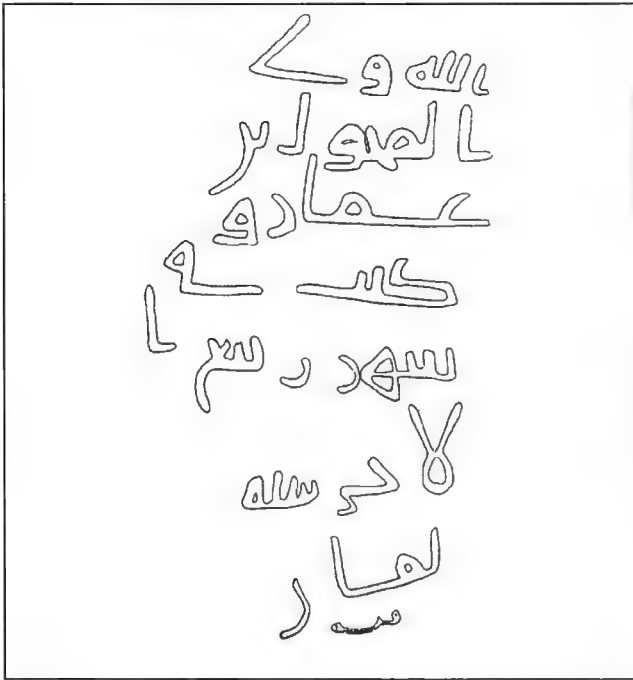 الله ولي
بن
عمار و
كتب في
شهر ربيع ا
لاخر سنه
ثما